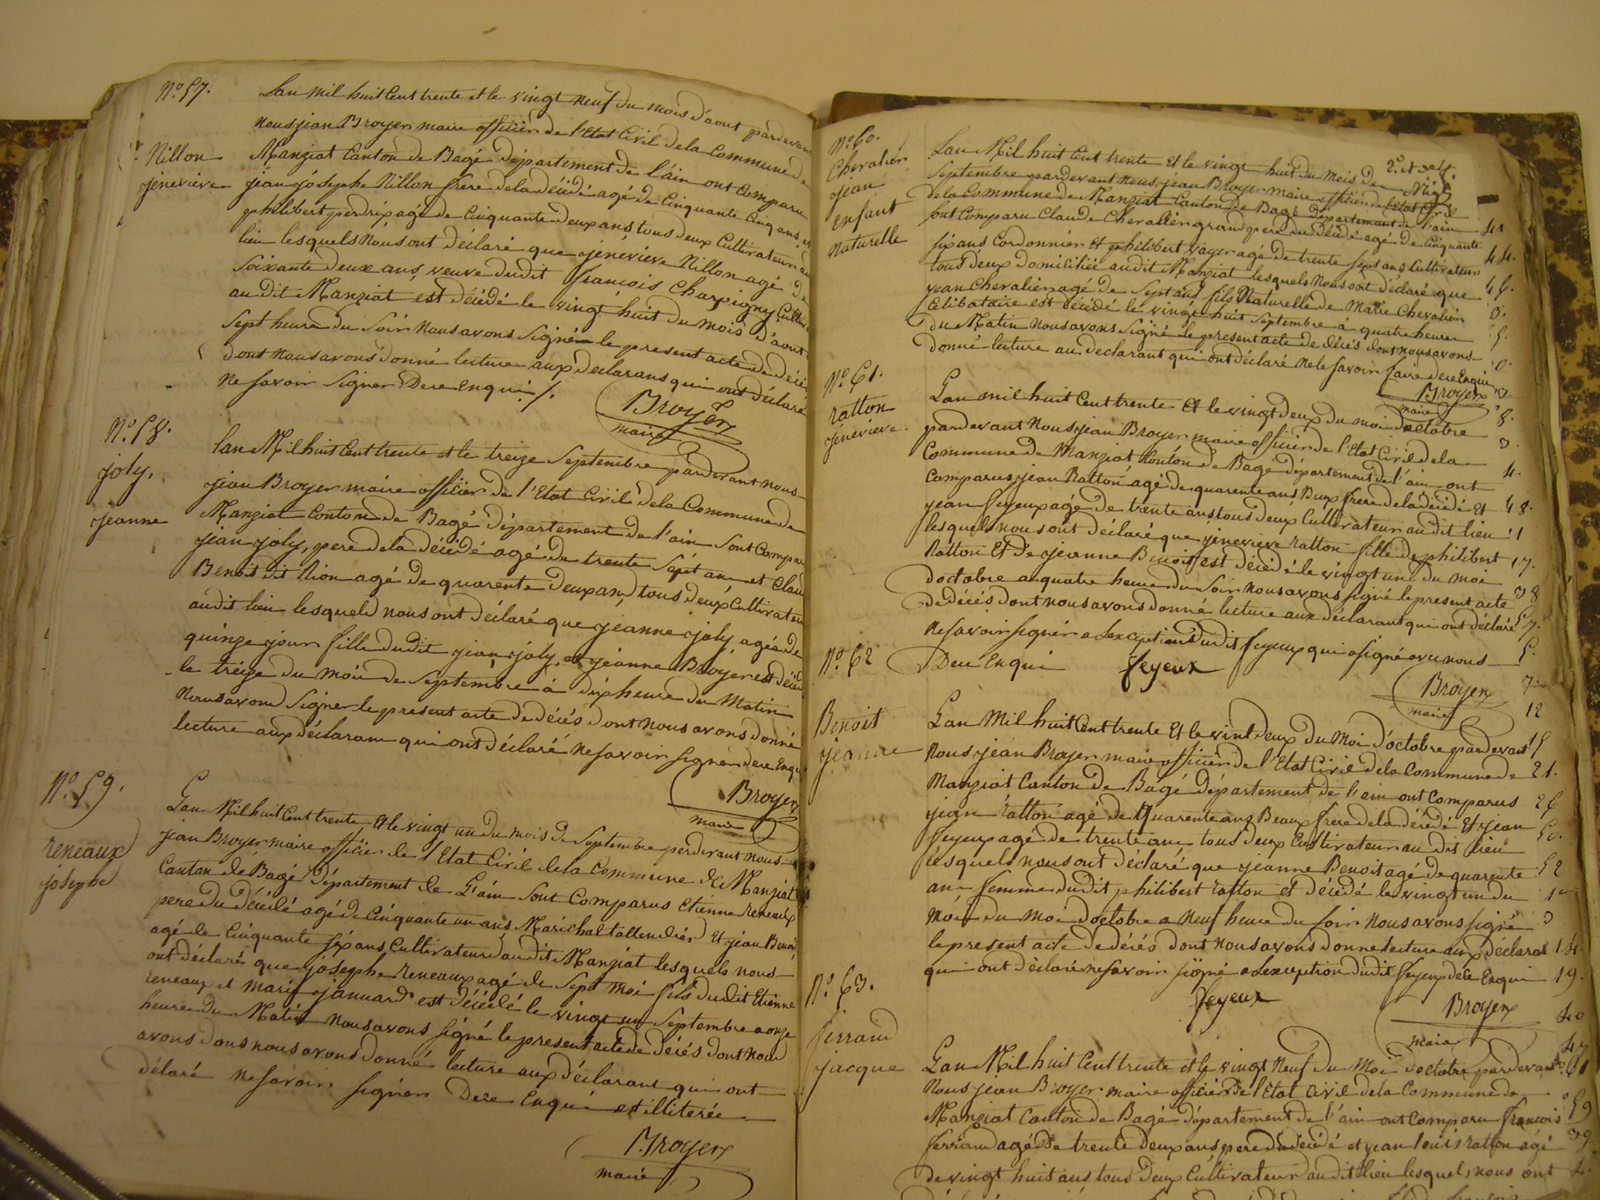 No. 57.
Nillon
jeneviève
Lan mil huit Cent trente et le vingt neuf du mois d'aout pardevan
Nous jean Broyer maire officier de l'Etat Civil dela Commune de
Manziat Canton de Bagé département de l'ain ont Comparu
jean joseph Nillon frere dela décédé agé de Cinquante Cinq ans et
philibert perdrix agé de Cinquante deux ans tous deux Cultivateur au
lieu lesquels Nous ont déclaré que jeneviève Nillon agé de
Soixante deux ans, veuve dudit françois Charpigny Cultiv
audit Manziat est décédé le vingt huit du mois d'aout
Sept heure du Soir Nous avons Signé le present acte de décé
dont Nous avons donné lecture aux declarans qui ont déclaré
Ne Savoir Signer Dece Enqui /.
Broyer
maire
No. 58.
joly,
jeanne
lan Mil huit Cent trente et le treize Septembre pardevant nous
jean Broyer maire officier de l'Etat Civil dela Commune de
Manziat Canton de Bagé département de l'ain Sont Compar
jean joly, pere dela décédé agé de trente Sept ans et Clau
Benoit dit Lion agé de quarente deux ans tous deux Cultivateu
audit lieu lesquels nous ont déclaré que jeanne joly agée de
quinze jour fille dudit jean joly, et jeanne Broyer est décé
le treize du mois de Septembre à dix heure du Matin
Nous avons Signer le present acte de décés dont nous avons donné
lecture aux déclarans qui ont déclaré ne Savoir Signer dece Enqu
Broyer
maire
No. 59.
reneaux
joseph
Lan Mil huit Cent trente Et le vingt un du mois de Septembre perdevant nous
jean Broyer maire officier de l'Etat Civil dela Commune de Manziat
Canton de Bagé département de L'ain Sont Comparus Etienne reneaux
pere du décédé agé de Cinquante un ans Marichal tallendier Et jean Benoi
agé de Cinquante Six ans Cultivateur audit Manziat lesquels nous
ont déclaré que joseph reneaux agé de Sept moi fils dudit Etienne
reneaux et marie januard est décédé le vingt un Septembre a onze
heure du Matin nous avons Signé le present acte de décés dont nous
avons donné lecture aux déclarant qui ont
délaré ne Savoir Signer Dece Enqui et illiterée
Broyer
maire
No. 60.
Chevalier
jean
enfant
naturelle
Lan Mil huit Cent trente Et le vingt huit du Mois de
Septembre pardevant nous jean Broyer maire officier de l'Etat Civil
dela Commune de Manziat Canton de Bagé département de l'ain
ont Comparu Claude Chevalier grand pere du décédé agé de Cinquante
Six ans Cordonnier Et philibert voyer agé de trente Sept ans Cultivateur
tous deux domiciliée audit Manziat lesquels Nous ont déclaré que
jean Chevalier agé de Sept ans fils Naturelle de Marie Chevalier
Célibataire est décédé le vingt huit Septembre a quatre heure
du Matin nous avons Signé le present acte de décés dont nous avons
donné lecture au declarant qui ont déclaré Ne le Savoir faire dece Enqui
Broyer
maire
No. 61.
ratton
jenevieve
Lan mil huit Cent trente Et le vingt deux du moi d'octobre
pardevant Nous jean Broyer maire officier de l'Etat Civil dela
Commune de Manziat Canton de Bagé département de l'ain ont
Comparus jean Ratton agé de quarente ans Beux frere dela décédé Et
jean feyeux agé de trente ans tous deux Cultivateur audit lieu
lesquels nous ont déclaré que jenevieve ratton fille de philibert
Ratton Et de jeanne Benoit est décédé le vingt un du moi
doctobre a quatre heure du Soir nous avons Signé le present acte
de décés dont nous avons donné lecture aux déclarant qui ont déclaré
ne Savoir Signér a Lexception dudit feyeux qui a Signé avec nous
Dece Enqui feyeux
Broyer
maire
No. 62
Benoit
jeanne
Lan Mil huit Cent trente Et le vint deux du Moi d'octobre pardevant
Nous jean Broyer maire officier de l'Etat Civil dela Commune de
Manziat Canton de Bagé département de l'ain ont Comparus
jean ratton agé de Quarente ans Beaux frere dela décédé Et jean
feyeux agé de trente ans tous deux Cultivateur au dit lieu
lesquels nous ont déclaré que jeanne Benoit agé de quarente
ans femme dudit philibert ratton Et décédé le vingt un du
Mois du Moi d'octobre a Neuf heure du Soir nous avons Signé
le present acte de décés dont nous avons donne lecture aux déclarat
qui ont déclaré ne Savoir Signé a Lexception dudit feyeux dece Enqui
feyeux
Broyer
maire
No. 63.
ferrand
jacque
Lan Mil huit Cent trente et le vingt Neuf du Moi d'octobre pardevant
Nous jean Broyer maire officier de l'Etat Civil dela Commune de
Manziat Canton de Bagé département de l'ain ont Comparu françois
ferrand agé de trente deux ans pere du décédé et jean louis ratton agé
de vingt huit ans tous deux Cultivateur audit lieu lesquel nous ont